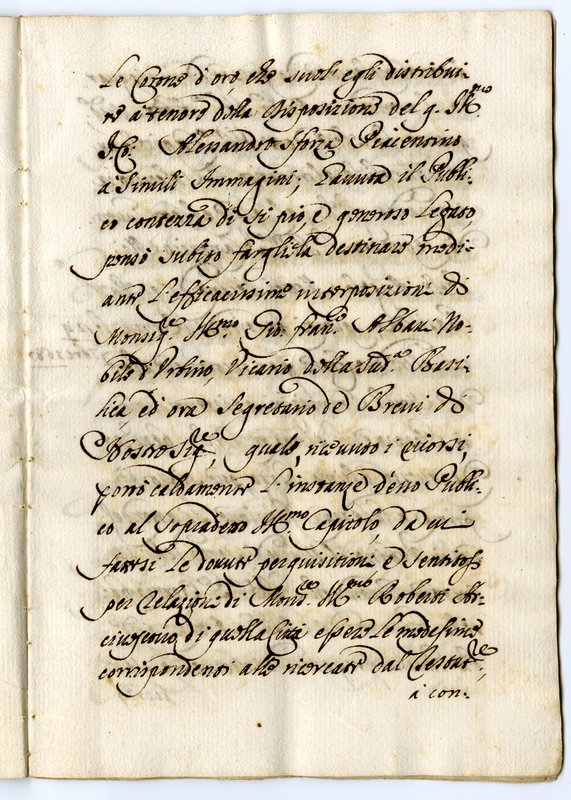 Le Corone d'oro, che suol' egli distribui-
re à tenore della Disposizione del q. Ill.mo
Co: Alessandro Sforza Piacentino
a' Simili Immagini; havuta il Publi-
co contezza di sì pio, e generoso Legato,
pensò subito fargliela destinare medi-
ante L'efficacissime interposizioni di
Monsig.e Ill.mo Gio: Fran.co Albani No-
bile d'Urbino, Vicario della Sud.a Basi-
lica, ed ora Segretario de' Brevi di
Nostro Sig.re, quale, ricevuto i ricorsi,
portò caldamente L'instanze d'esso Publi-
co al Sopradetto Ill.mo Capitolo, da cui
fattesi Le dovute perquisitioni e sentitosi
per relazione di Mons.re Ill.mo Roberti Ar-
civescovo di quella Città essere Le medesime
corrispondenti alle ricercate dal Testat.re,
à con-